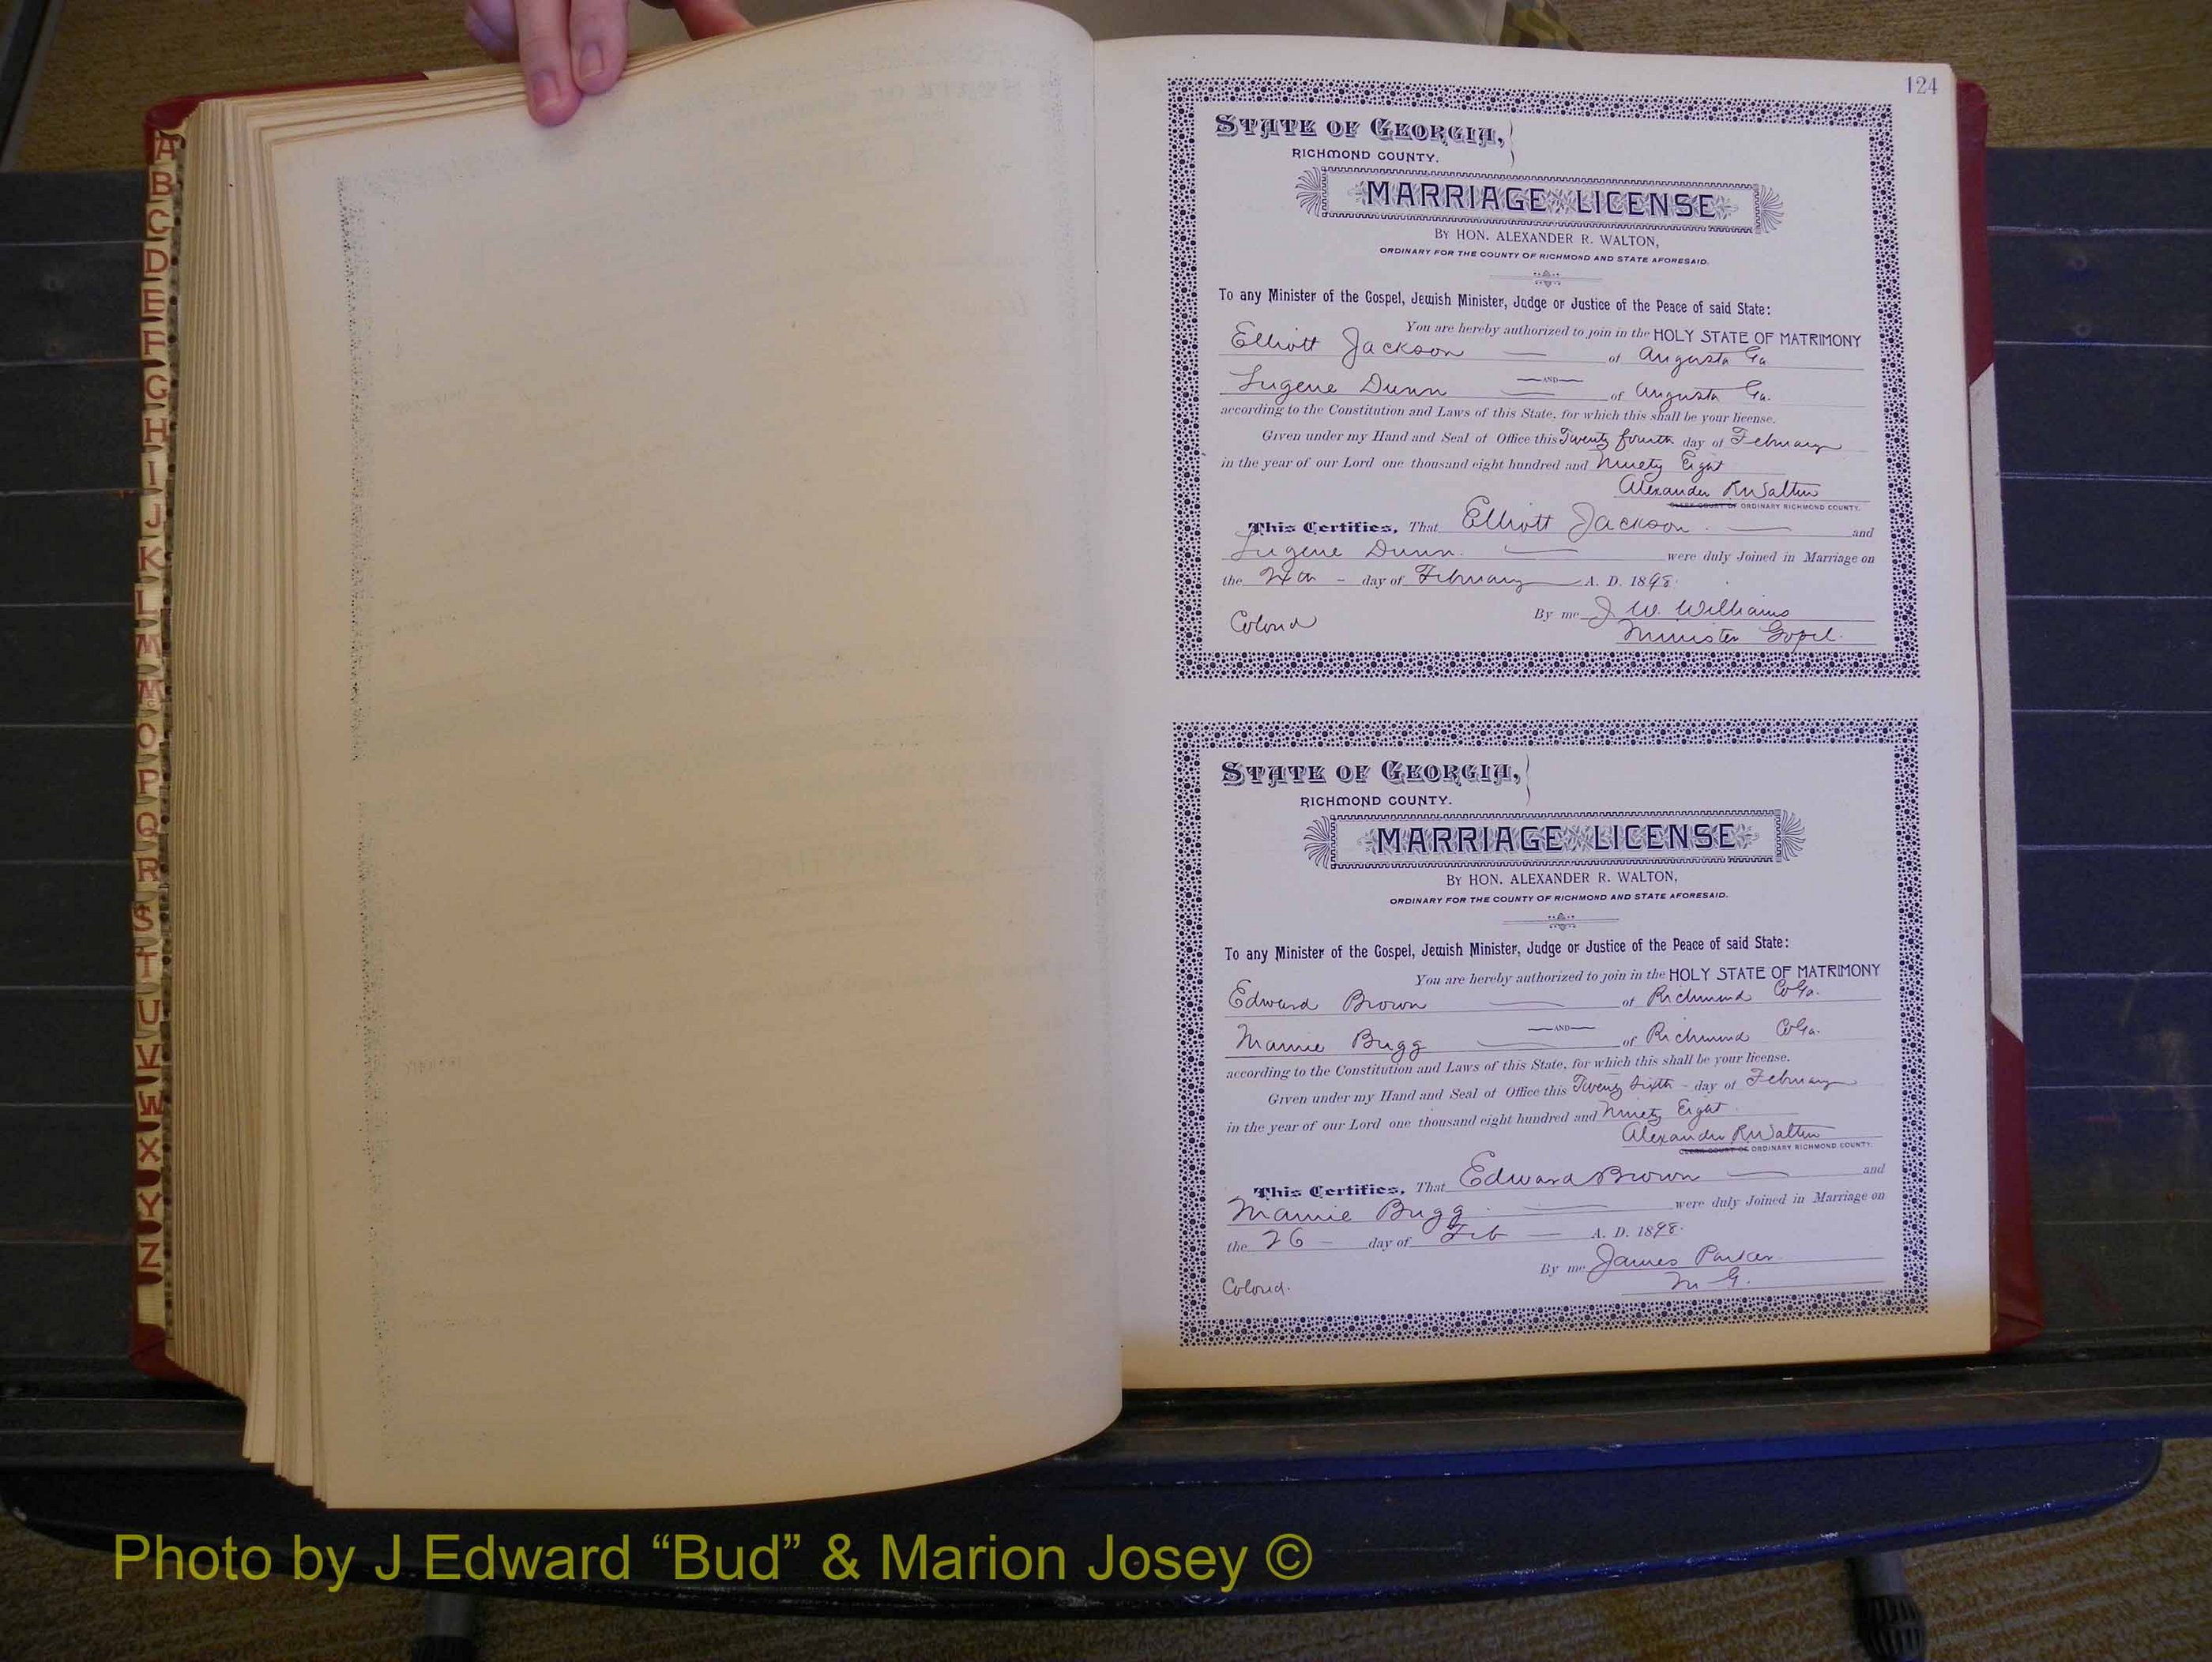 A
B
C
D
E
F
G
H
I
J
K
L
M
Mc
O
P
Q
R
S
T
U
V
W
X
Y
Z
124
STATE OF GEORGIA,
RICHMOND COUNTY.
MARRIAGE LICENSE
BY HON. ALEXANDER R. WALTON,
ORDINARY FOR THE COUNTY OF RICHMOND AND STATE AFORESAID.
To any Minister of the Gospel, Jewish Minister, Judge or Justice of the Peace of said State:
You are hereby authorized to join in the HOLY STATE OF MATRIMONY
Elliott Jackson of Augusta Ga
AND
Eugene Dunn of Augusta Ga.
according to the Constitution and Laws of this State, for which this shall be your license.
Given under my Hand and Seal of Office this Twenty fourth day of February
in the year of our Lord one thousand eight hundred and Ninety Eight
Alexander R Walton
CLERK COURT OF ORDINARY RICHMOND COUNTY.
This Certifies, That Elliott Jackson and
Eugene Dunn. were duly Joined in Marriage on
the 24th - day of February A. D. 1898.
By me J. W. Williams
Colored
Minister Gospel.
STATE OF GEORGIA,
RICHMOND COUNTY.
MARRIAGE LICENSE
BY HON. ALEXANDER R. WALTON,
ORDINARY FOR THE COUNTY OF RICHMOND AND STATE AFORESAID.
To any Minister of the Gospel, Jewish Minister, Judge or Justice of the Peace of said State:
You are hereby authorized to join in the HOLY STATE OF MATRIMONY
Edward Brown of Richmond Co Ga.
AND
Mamie Bugg of Richmond Co Ga.
according to the Constitution and Laws of this State, for which this shall be your license.
Given under my Hand and Seal of Office this Twenty Sixth - day of February
in the year of our Lord one thousand eight hundred and Ninety Eight.
Alexander R Walton
CLERK COURT OF ORDINARY RICHMOND COUNTY.
This Certifies, That Edward Brown and
Mamie Bugg. were duly Joined in Marriage on
the 26 - day of Feb A. D. 1898.
By me James Parker
Colored.
M G.
Photo by J Edward “Bud” & Marion Josey ©